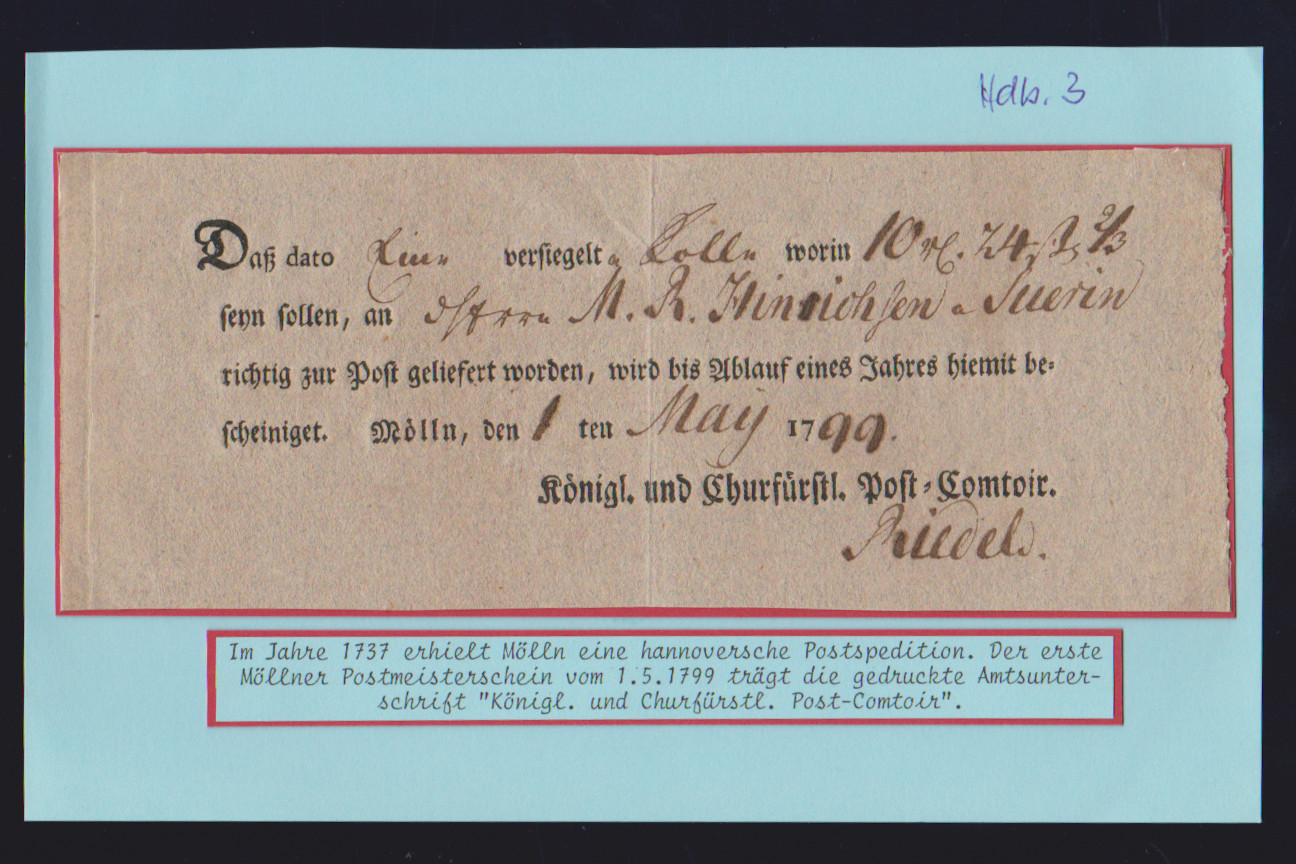 Hdb. 3
Daß dato Eine versiegelte Rolle worin 10 rl. 24 ß
seyn sollen, an M. R. Hinrichsen a Suerin
richtig zur Post geliefert worden, wird bis Ablauf eines Jahres hiemit be-
scheiniget. Mölln, den 1 ten May 1799.
Königl. und Churfürstl. Post-Comtoir.
Riedel.
Im Jahre 1737 erhielt Mölln eine hannoversche Postspedition. Der erste
Möllner Postmeisterschein vom 1.5.1799 trägt die gedruckte Amtsunter-
schrift "Königl. und Churfürstl. Post-Comtoir".